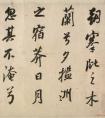 朝搴阰之木
蘭兮夕攬洲
之宿莽日月
忽其不淹兮